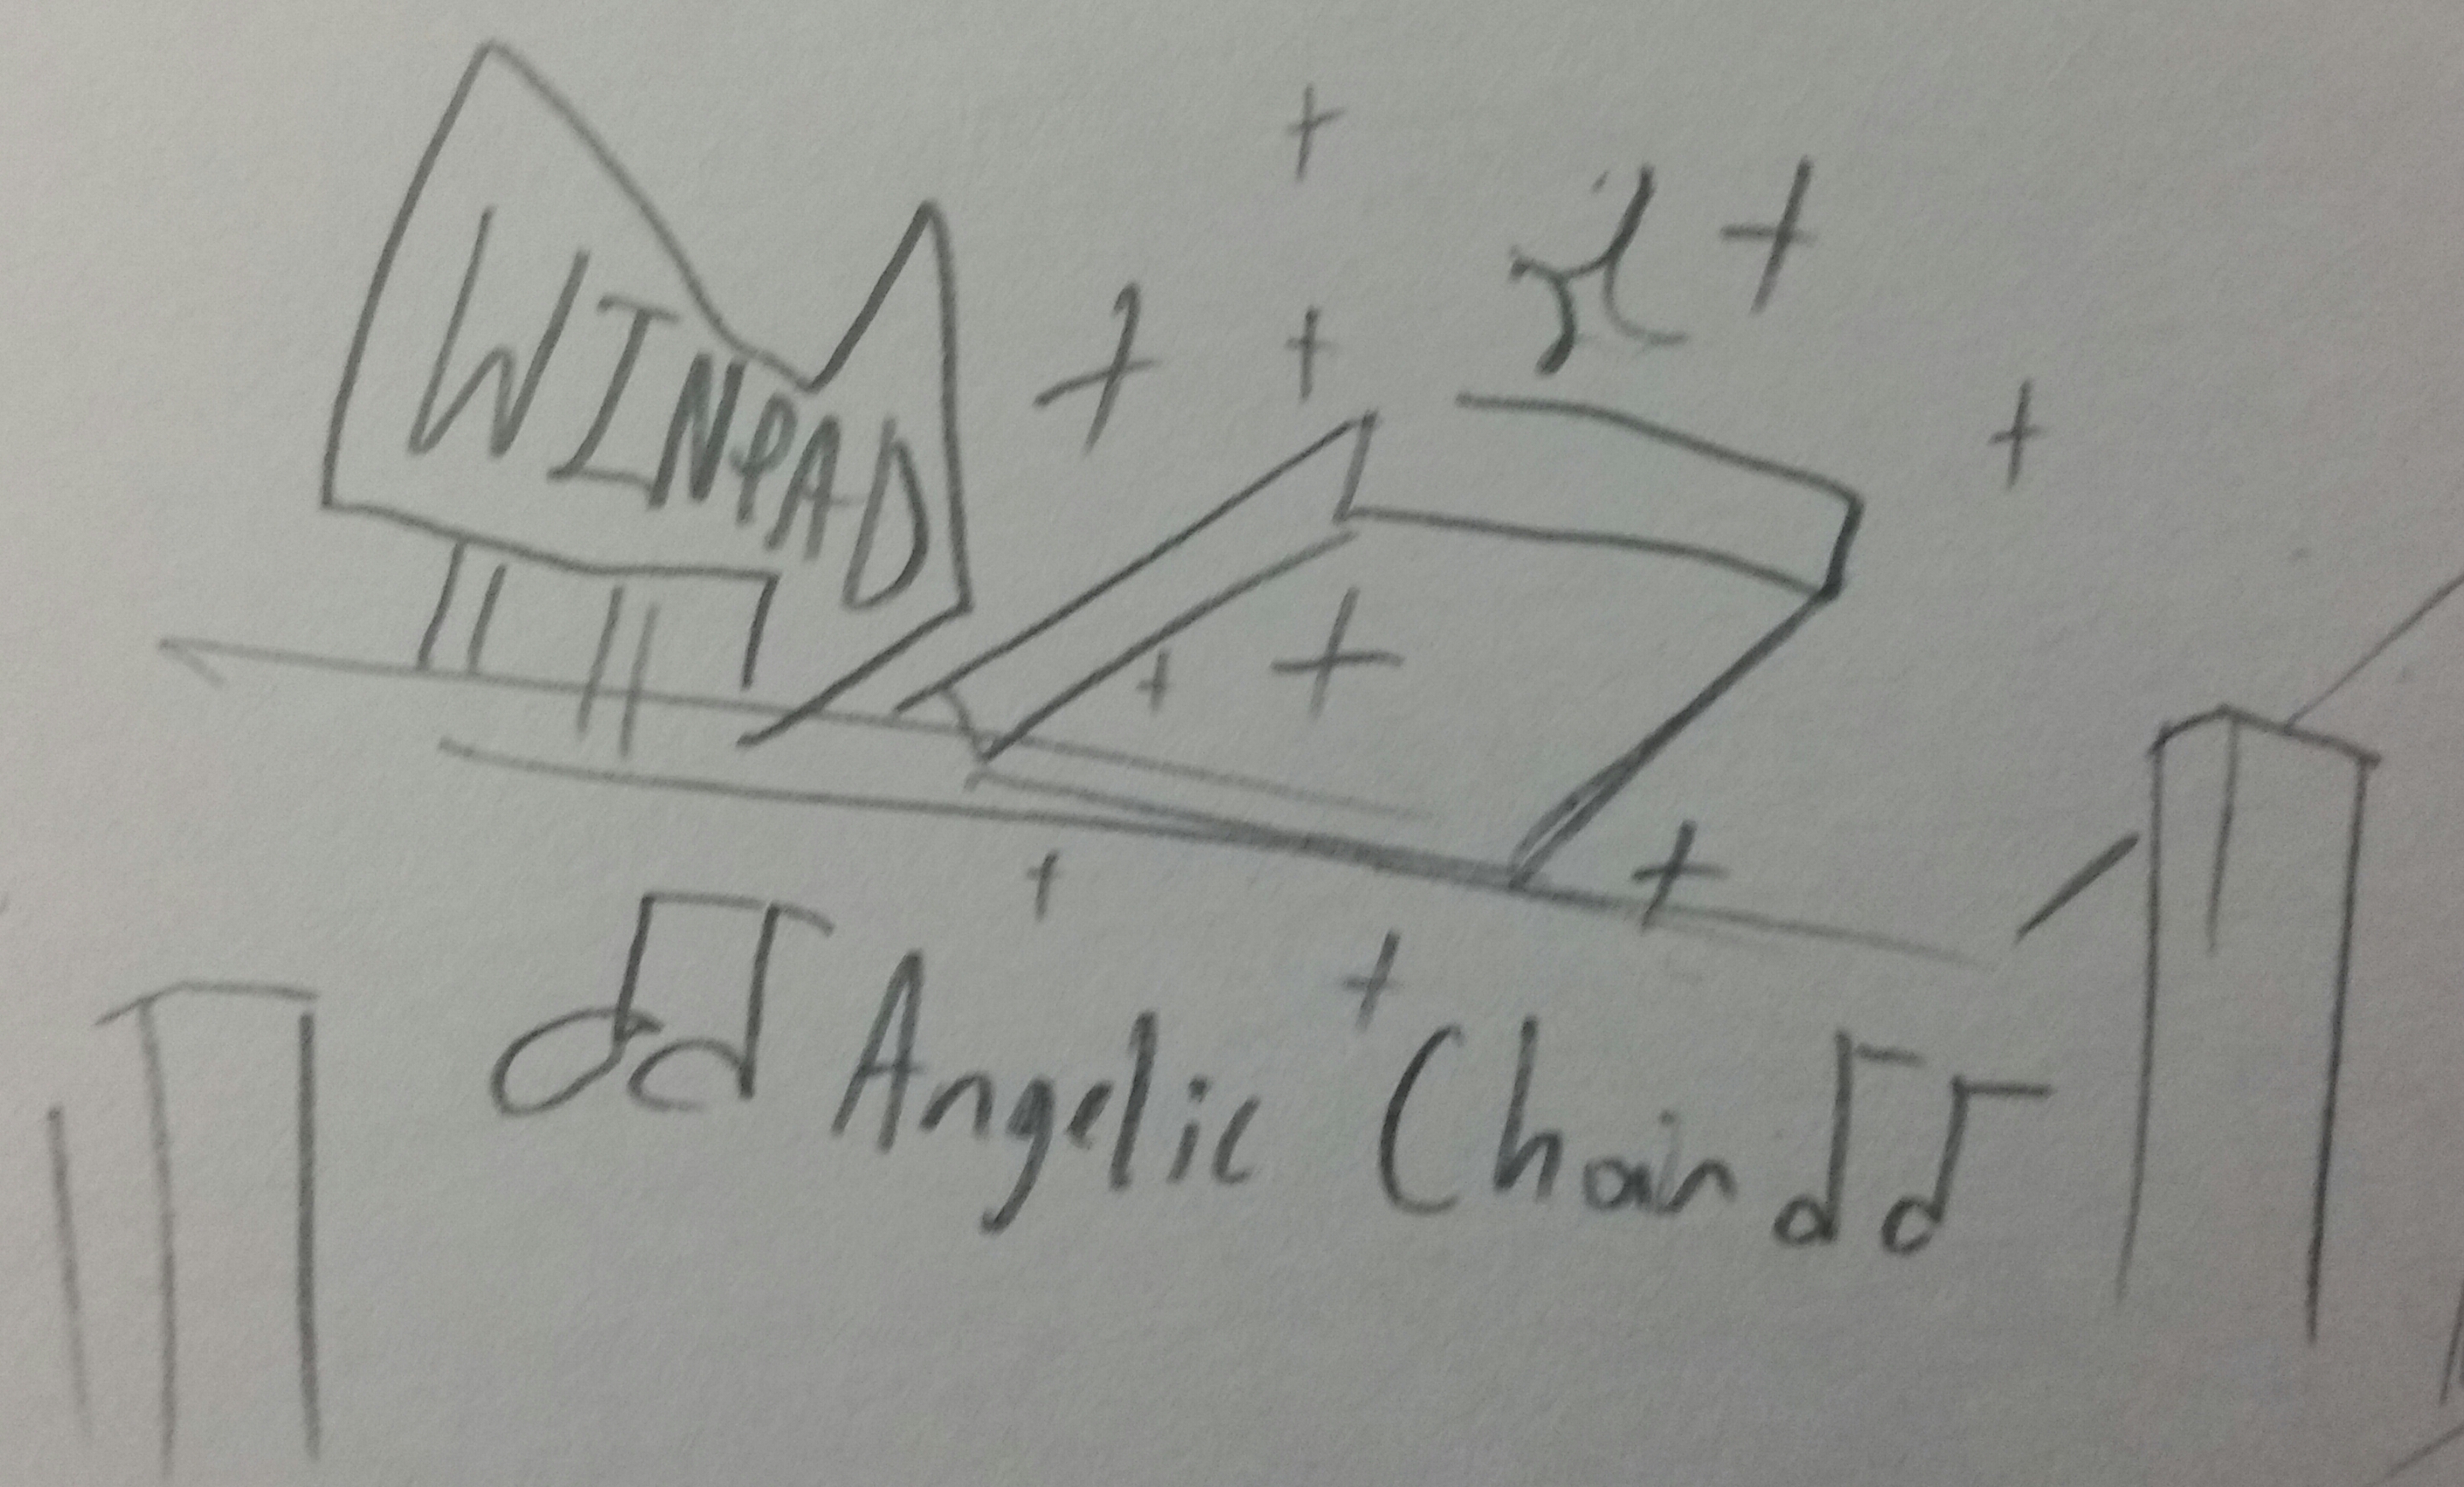 WINPAD
♫ Angelic Chain ♪♪